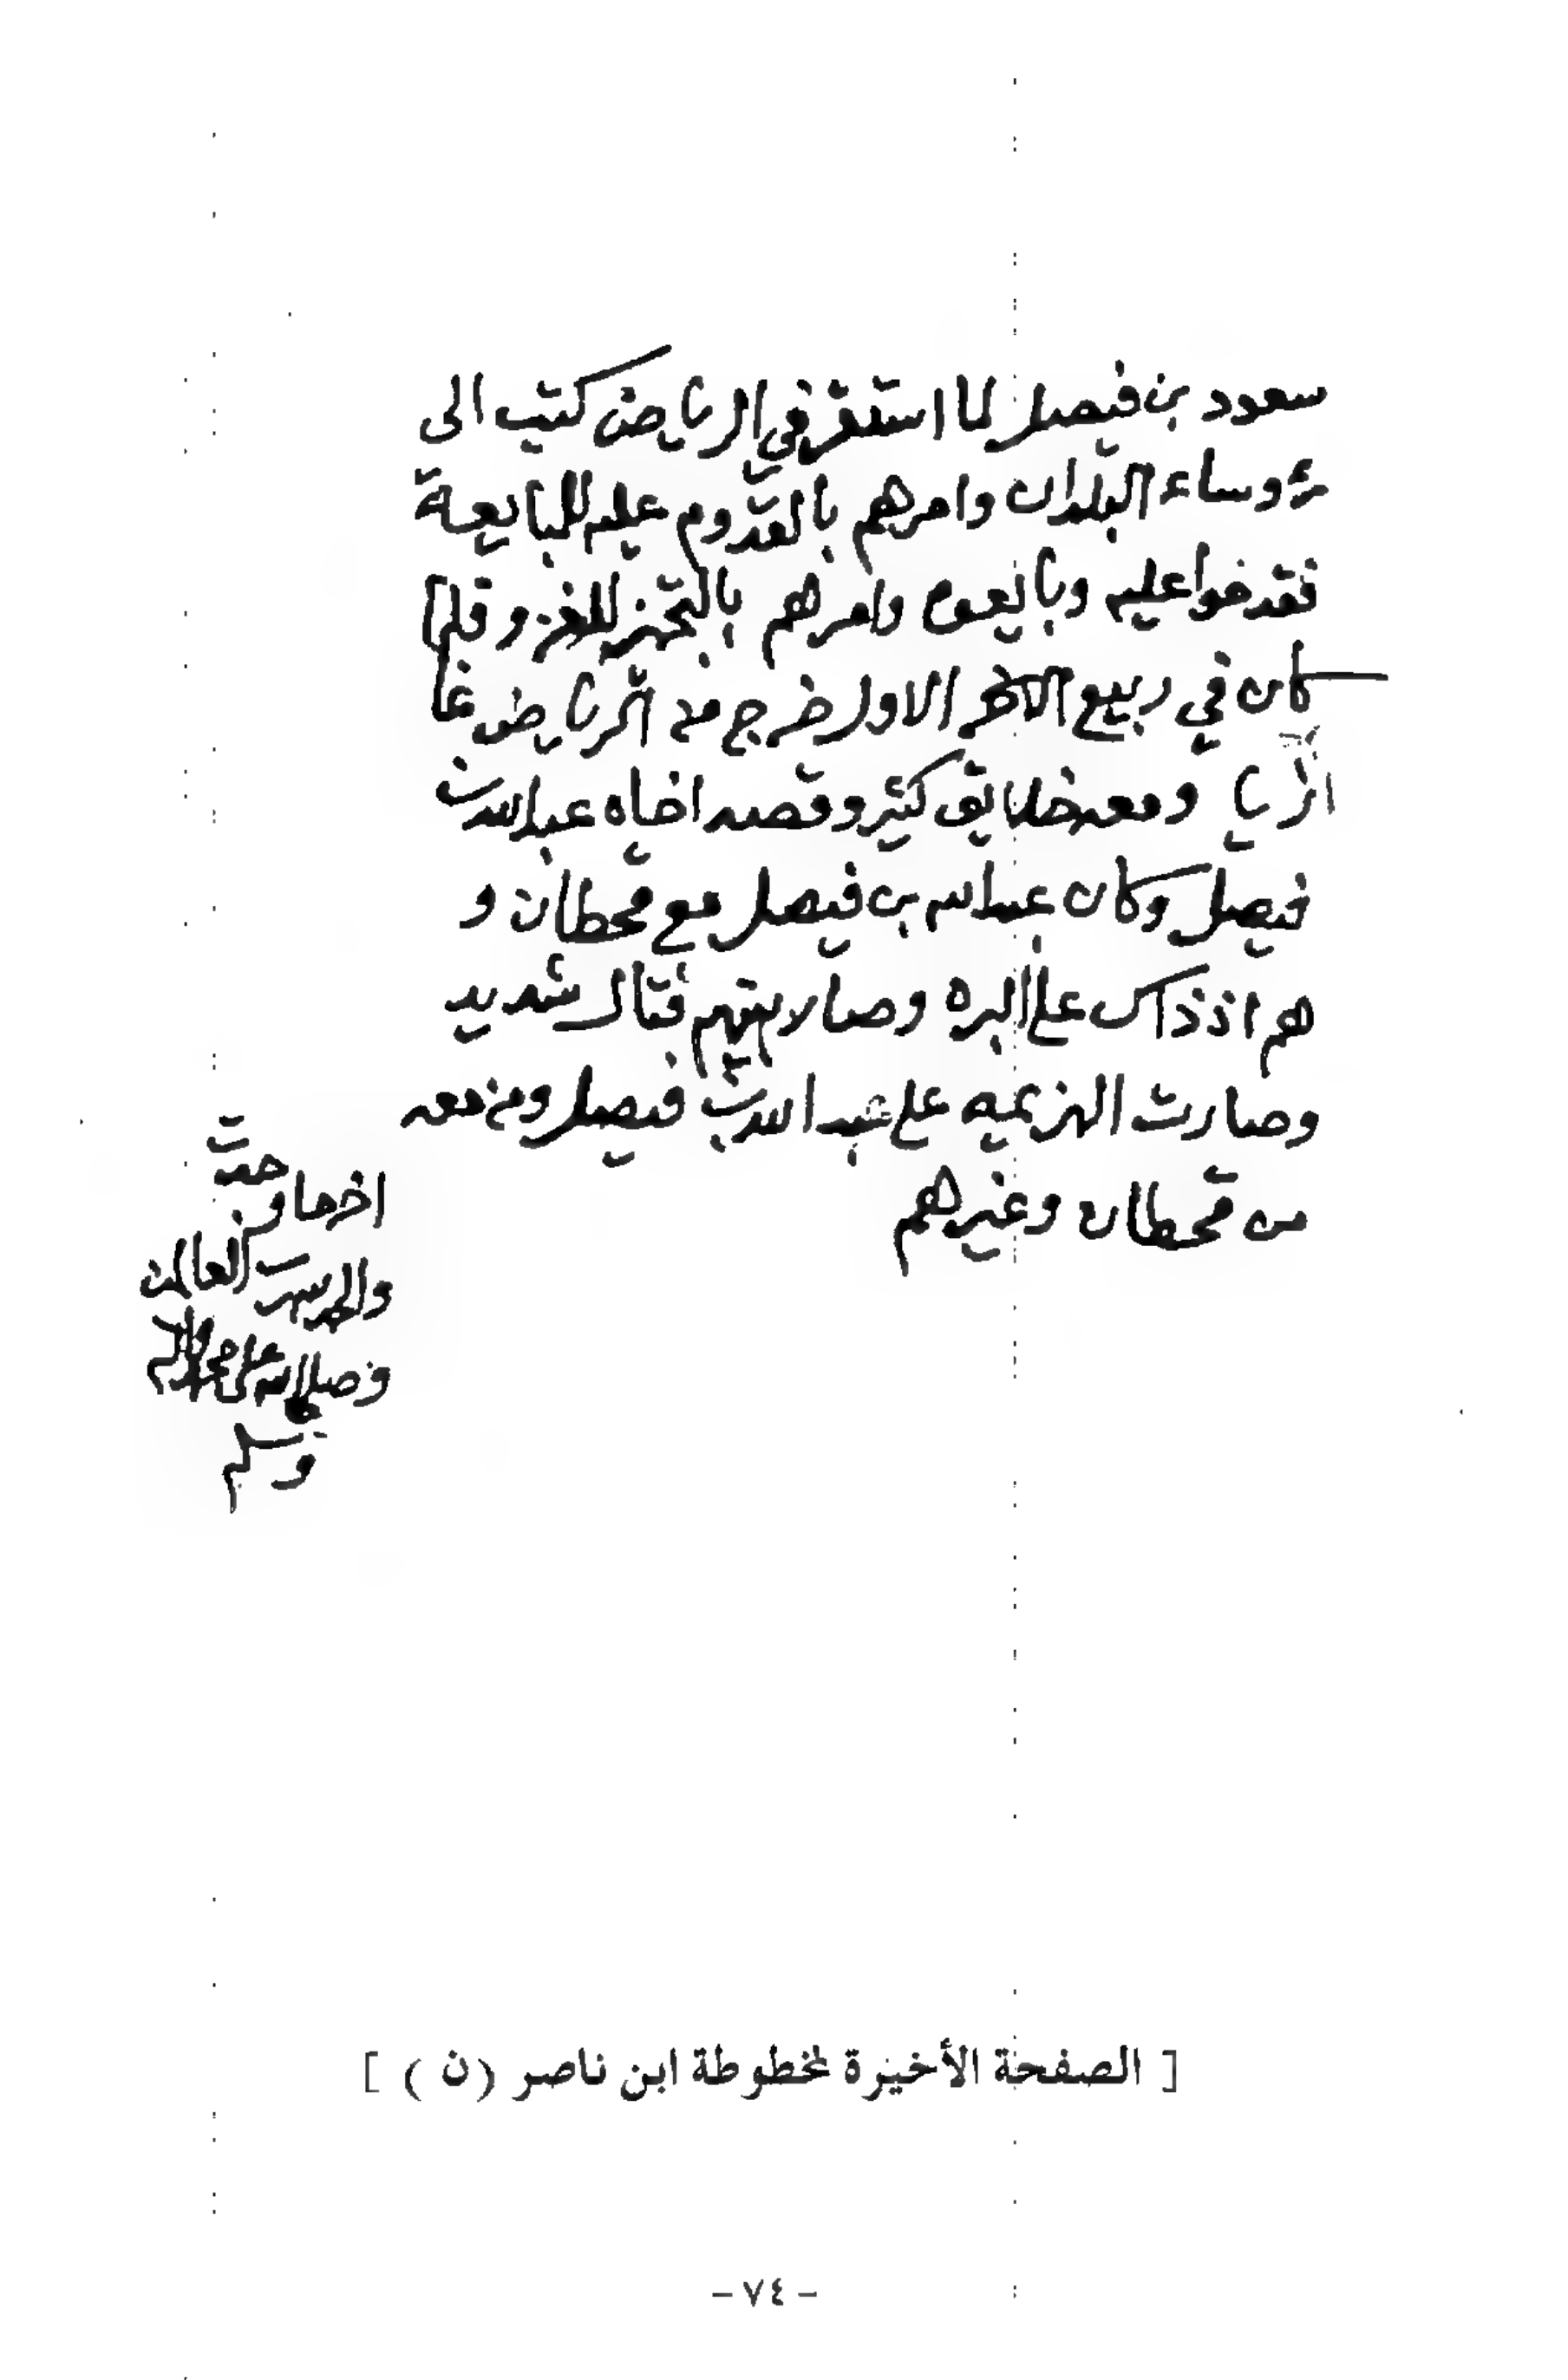 سعود بن فيصل لما استقر في الرياض كتب الى
رءوساء البلدان وامرهم بالقدوم عليه للمبايعة
فقدموا عليه وبايعوه وامرهم بالتجهز للغزو فلما
كان في ربيع الاول خرج من الرياض غا
ومعه خلايق كثير وقصد اخاه عبد الله بن
فيصل وكان عبد الله بن فيصل مع قحطان و
هم اذ ذاك على البره وصار بينهم قتال شديد
وصارت الهزيمه على عبد الله بن فيصل ومن معه
من قحطان وغيرهم
اخر ما وجدت
والحمد لله رب العالمين
وصلى الله على محمد
وسلم
[ الصفحة الأخيرة لمخطوطة ابن ناصر (ن) ]
– ٧٤ –